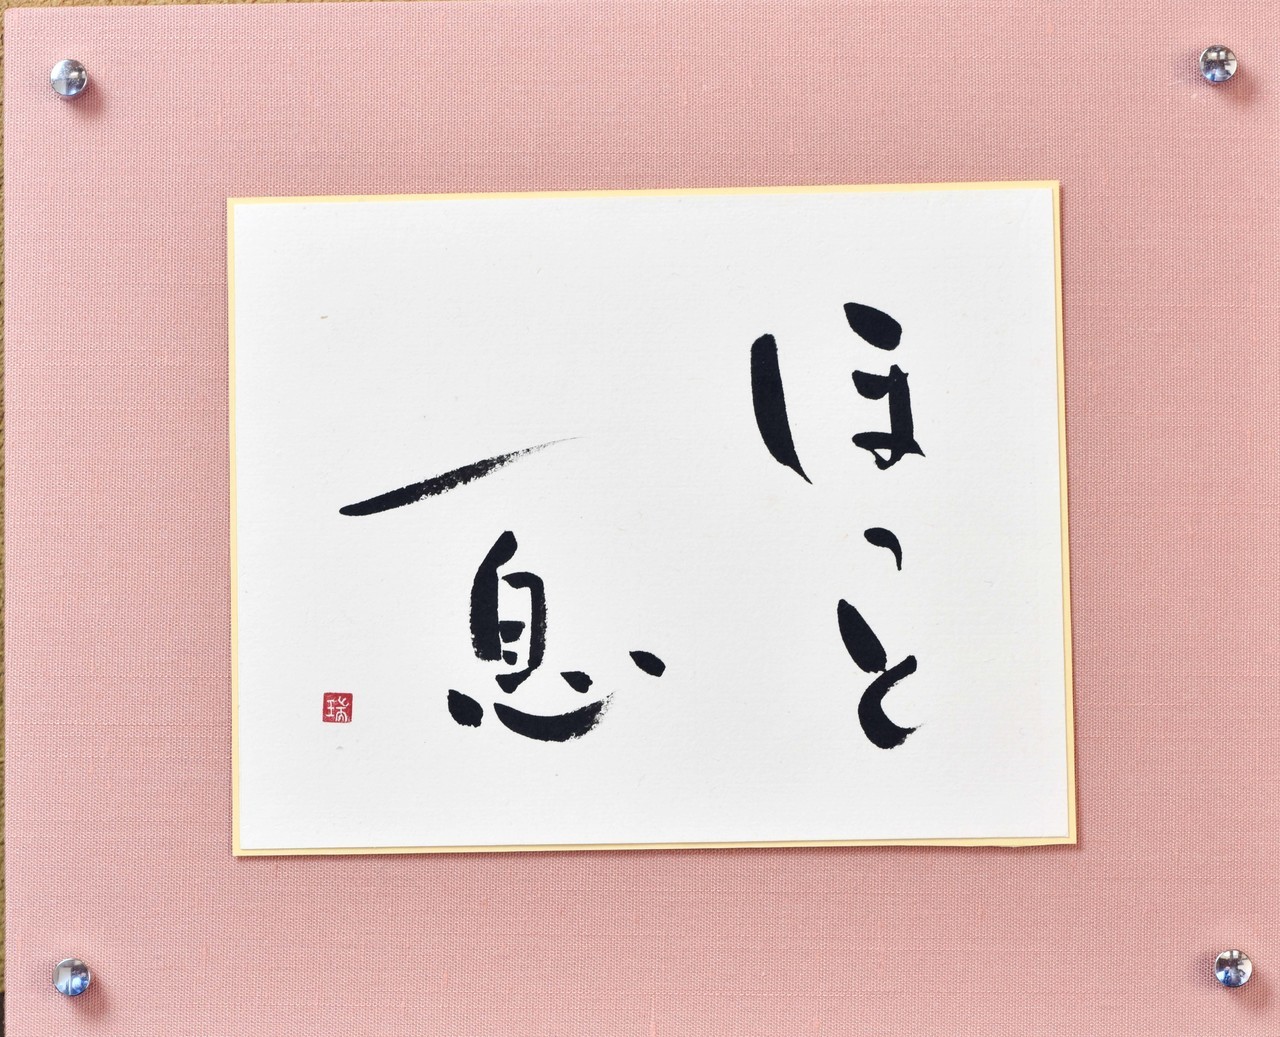 ほっと
一息
瑞